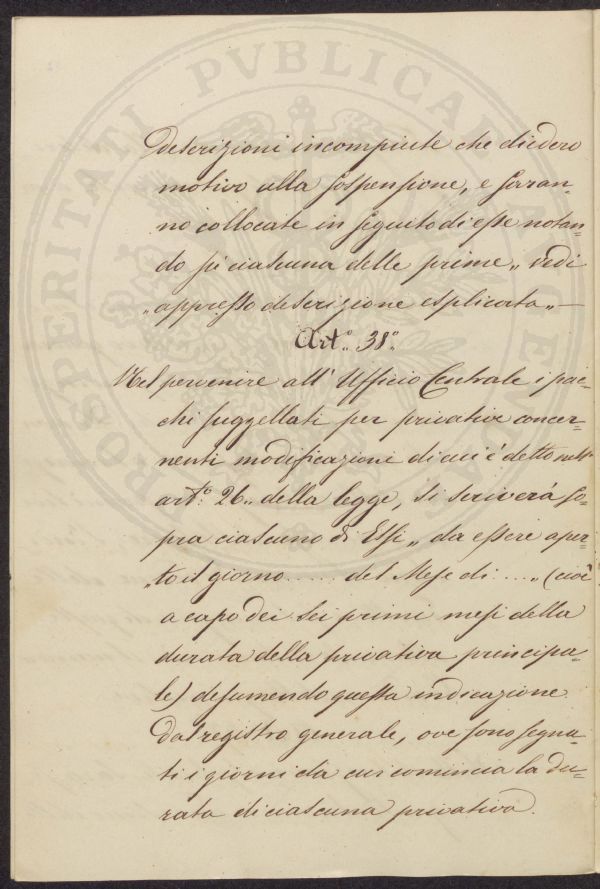 descrizioni incompiute che diedero
motivo alla sospensione, e saran=
no collocate in seguito di esse notan=
do su ciascuna delle prime „ vedi
„ appresso descrizione esplicata „—
Art.º 38º.
Nel pervenire all' Ufficio Centrale i pac=
chi suggellati per privative concer=
nenti modificazioni di cui è detto nell'
art.º 26.. della legge, si scriverà so=
pra ciascuno di Essi „ da essere aper=
„ to il giorno ..... del Mese di .... „ (cioè
a capo dei sei primi mesi della
durata della privativa principa=
le) desumendo questa indicazione
dal registro generale, ove sono segna=
ti i giorni da cui comincia la du=
rata di ciascuna privativa.
PROSPERITATI PVBLICAE AVGENDAE